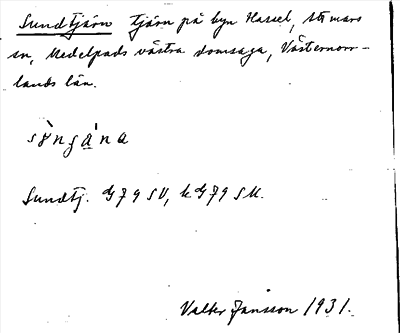 Sundtjärn tjärn på byn Hassel, 
sn, Medelpads västra domsaga, Västernorr-
lands län.
Sundtj. G79 SV, k G79 SU.
Valter Jansson 1931.